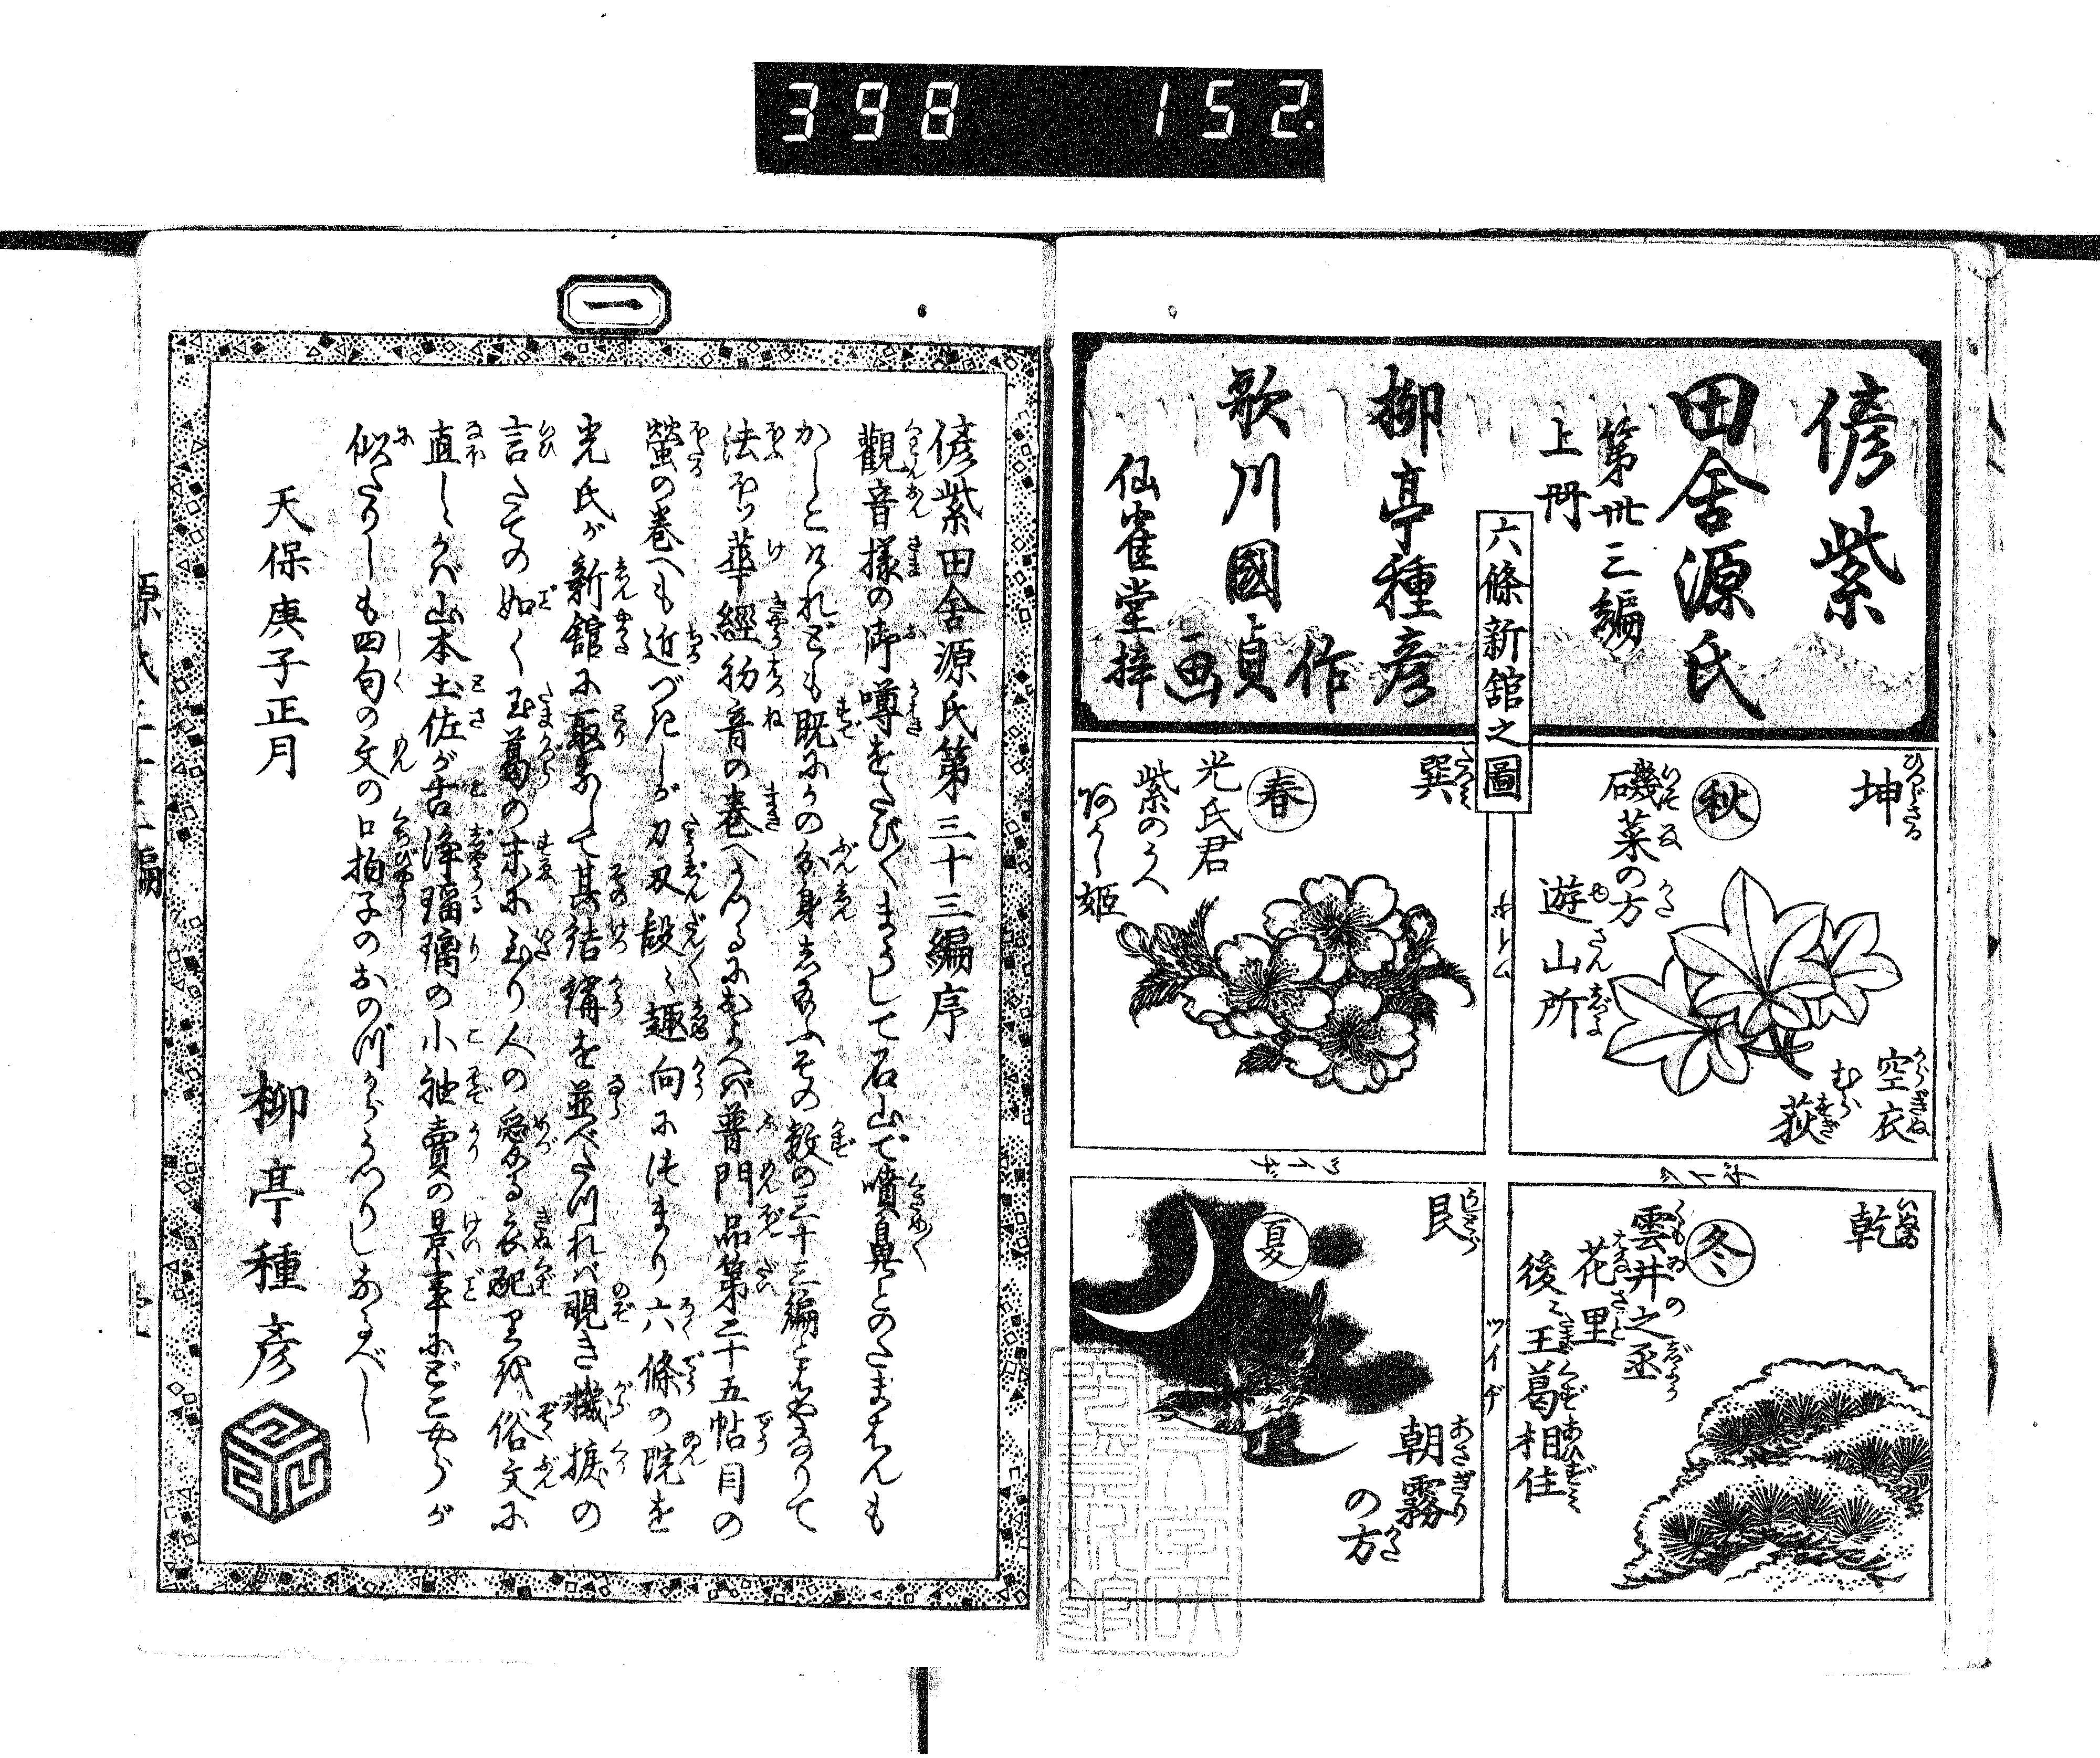 398 152.
偐紫
田舎源氏
第卅三編
上冊
柳亭種彦
作
歌川國貞
画
仙雀堂梓
六條新舘之圖
坤
ひつじさる
秋
磯菜の方
遊山所
空衣
むら荻
巽
たつミ
春
光氏君
紫のうへ
乾
いぬゐ
冬
雲井之丞
花里
後ミ玉葛相住
艮
うしとら
夏
朝霧
の方
ツイヂ
ツイヂ
一
偐紫田舎源氏第三十三編序
觀音樣の御噂をたび〱まうして石山で嚏鼻とのたまはんも
かしこけれども既に
の分身
その數の三十三編と
なりて
法
華經初音の巻へ
普門品第二十五帖目の
螢の巻へも近づきしが刀刄段〻趣向につまり六條の院を
光氏が新舘に取なして其結構を並べたつれば覗き機捩の
言たての如く玉葛の末に至り人の愛る衣配りを俗文に
直しゝかば山本土佐が古浄瑠璃の小袖賣の景事に
似たりしも四句の文の口拍子のおのづからうつりしなるべし
天保庚子正月
柳亭種彦